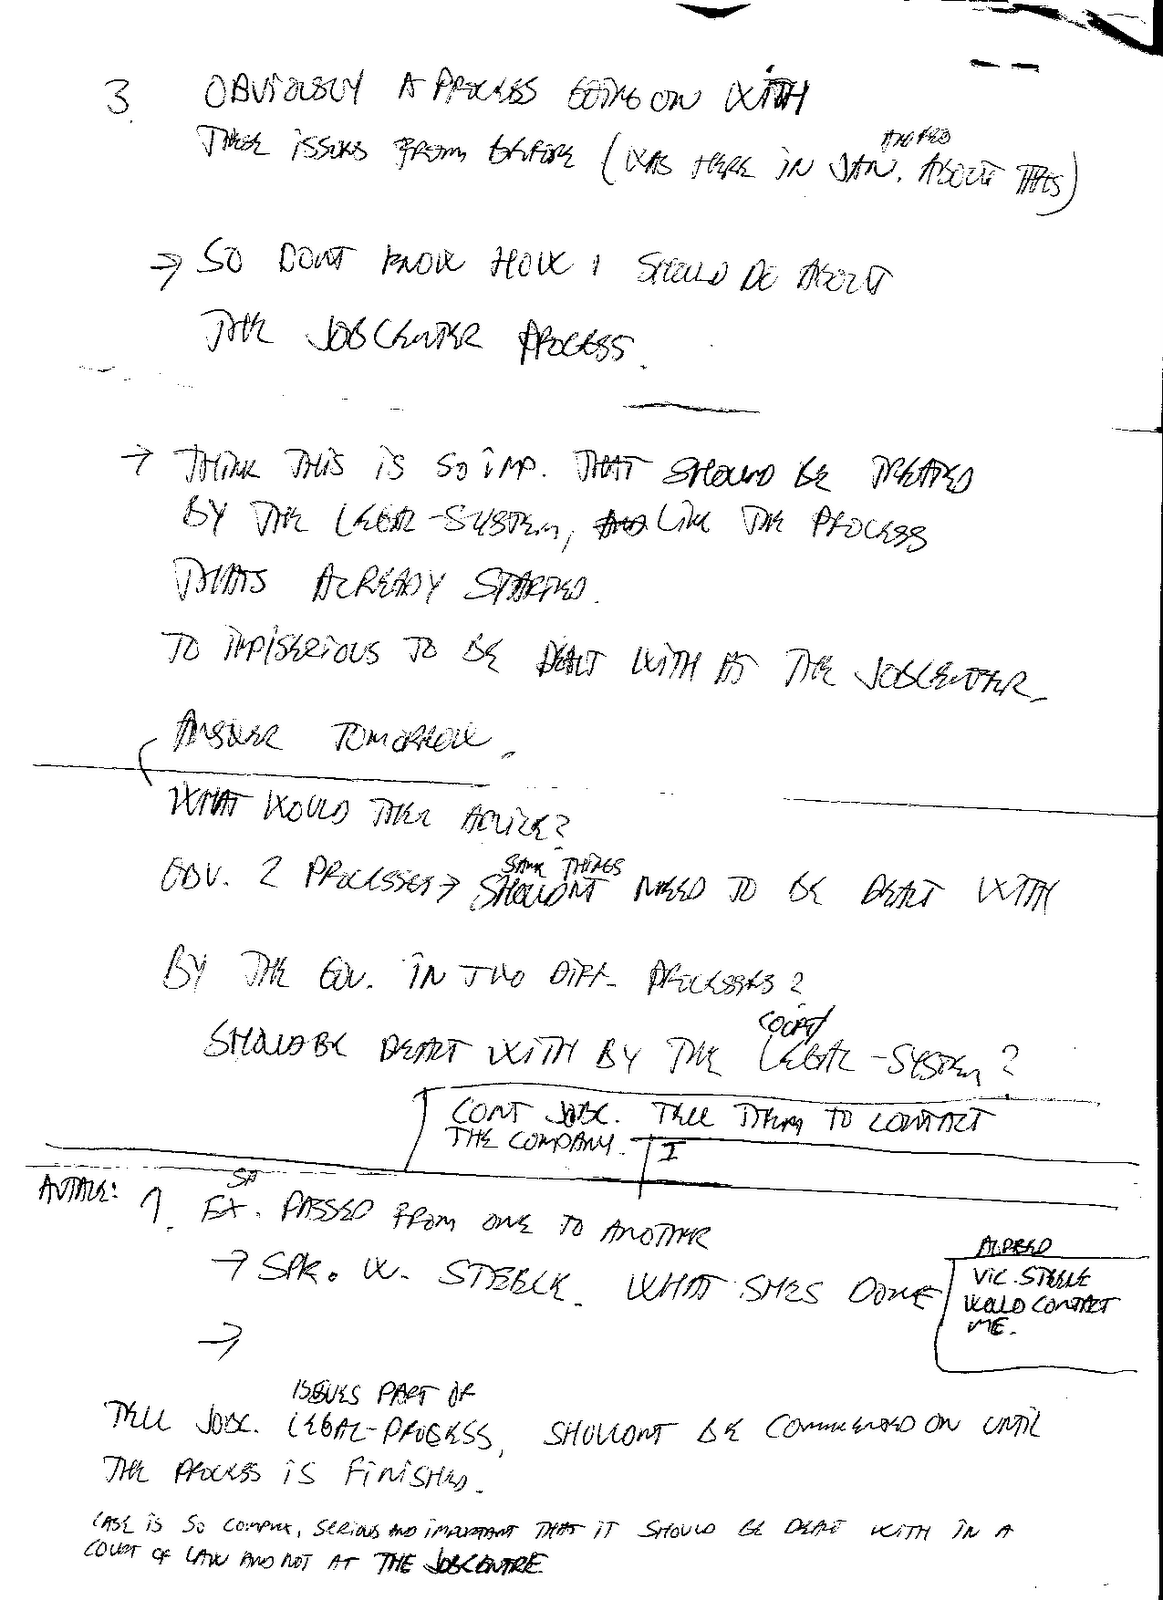 3. OBVIOUSLY A PROCESS GOING ON WITH
THESE ISSUES FROM BEFORE (WAS HERE IN JAN. ABOUT THIS)
→ SO DONT KNOW HOW I SHOULD DO ABOUT
THE JOBCENTER PROCESS.
→ THINK THIS IS SO IMP. THAT SHOULD BE TREATED
BY THE LEGAL-SYSTEM, LIKE THE PROCESS
THATS ALREADY STARTED.
TO SERIOUS TO BE DEALT WITH AT THE JOBCENTER.
ANSWER TOMORROW.
WHAT WOULD THEY ADVICE?
SAME THINGS
OBV. 2 PROCESSES → SHOULDNT NEED TO BE DEALT WITH
BY THE GOV. IN TWO DIFF. PROCESSES?
COURT/
SHOULD BE DEALT WITH BY THE LEGAL-SYSTEM?
CONT JOBC. TELL THEM TO CONTACT
THE COMPANY. I
1. EX. PASSED FROM ONE TO ANOTHER
→ SPK. W. STEELE. WHAT SHES DONE
ALFRED
VIC. STEELE
WOULD CONTACT
ME.
→
ISSUES PART OF
TELL JOBC. LEGAL-PROCESS, SHOULDNT BE COMMENTED ON UNTIL
THE PROCESS IS FINISHED.
CASE IS SO COMPLEX, SERIOUS AND IMPORTANT THAT IT SHOULD BE DEALT WITH IN A
COURT OF LAW AND NOT AT THE JOBCENTRE